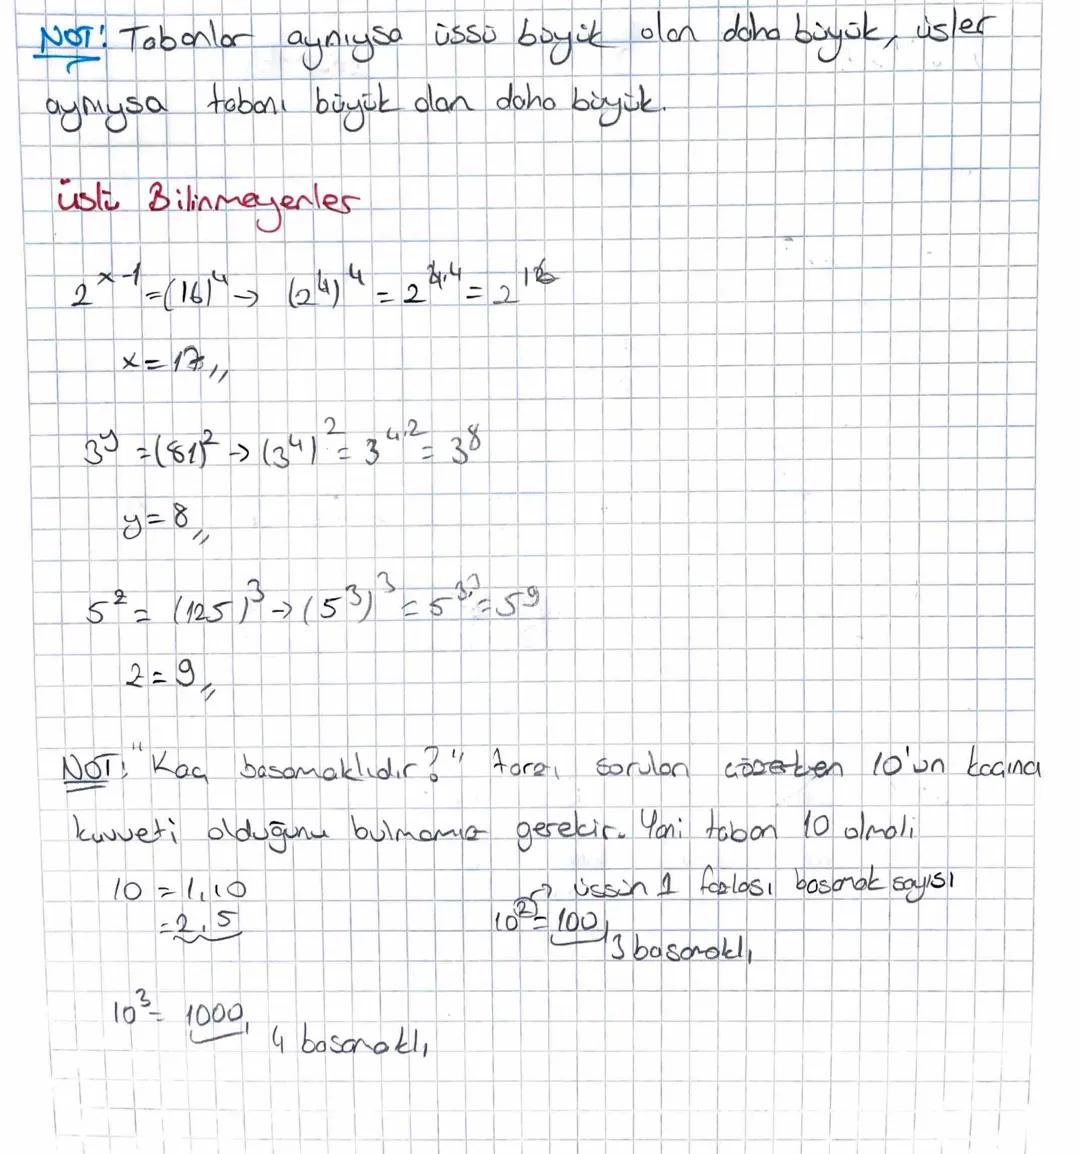 NOT! Tabanlar aynıysa üssü büyük olan daha büyük, üsler
aynıysa tabanı büyük olan daha büyük.
üslü Bilinmeyenler
2^(x-1) = (16)^4 → (2^4)^4 = 2^(4.4) = 2^16
x = 17,,
3^y = (81)^2 → (3^4)^2 = 3^(4.2) = 3^8
y = 8,,
5^z = (125)^3 → (5^3)^3 = 5^(3.3) = 5^9
z = 9,,
NOT! "Kaç basamaklıdır?" tarzı sorular çözerken 10'un kaçıncı
kuvveti olduğunu bulmamız gerekir. Yani taban 10 olmalı
10 = 1.10
= 2.5
→ üssün 1 fazlası basamak sayısı
10^2 = 100,
3 basamaklı
10^3 = 1000,
4 basamaklı